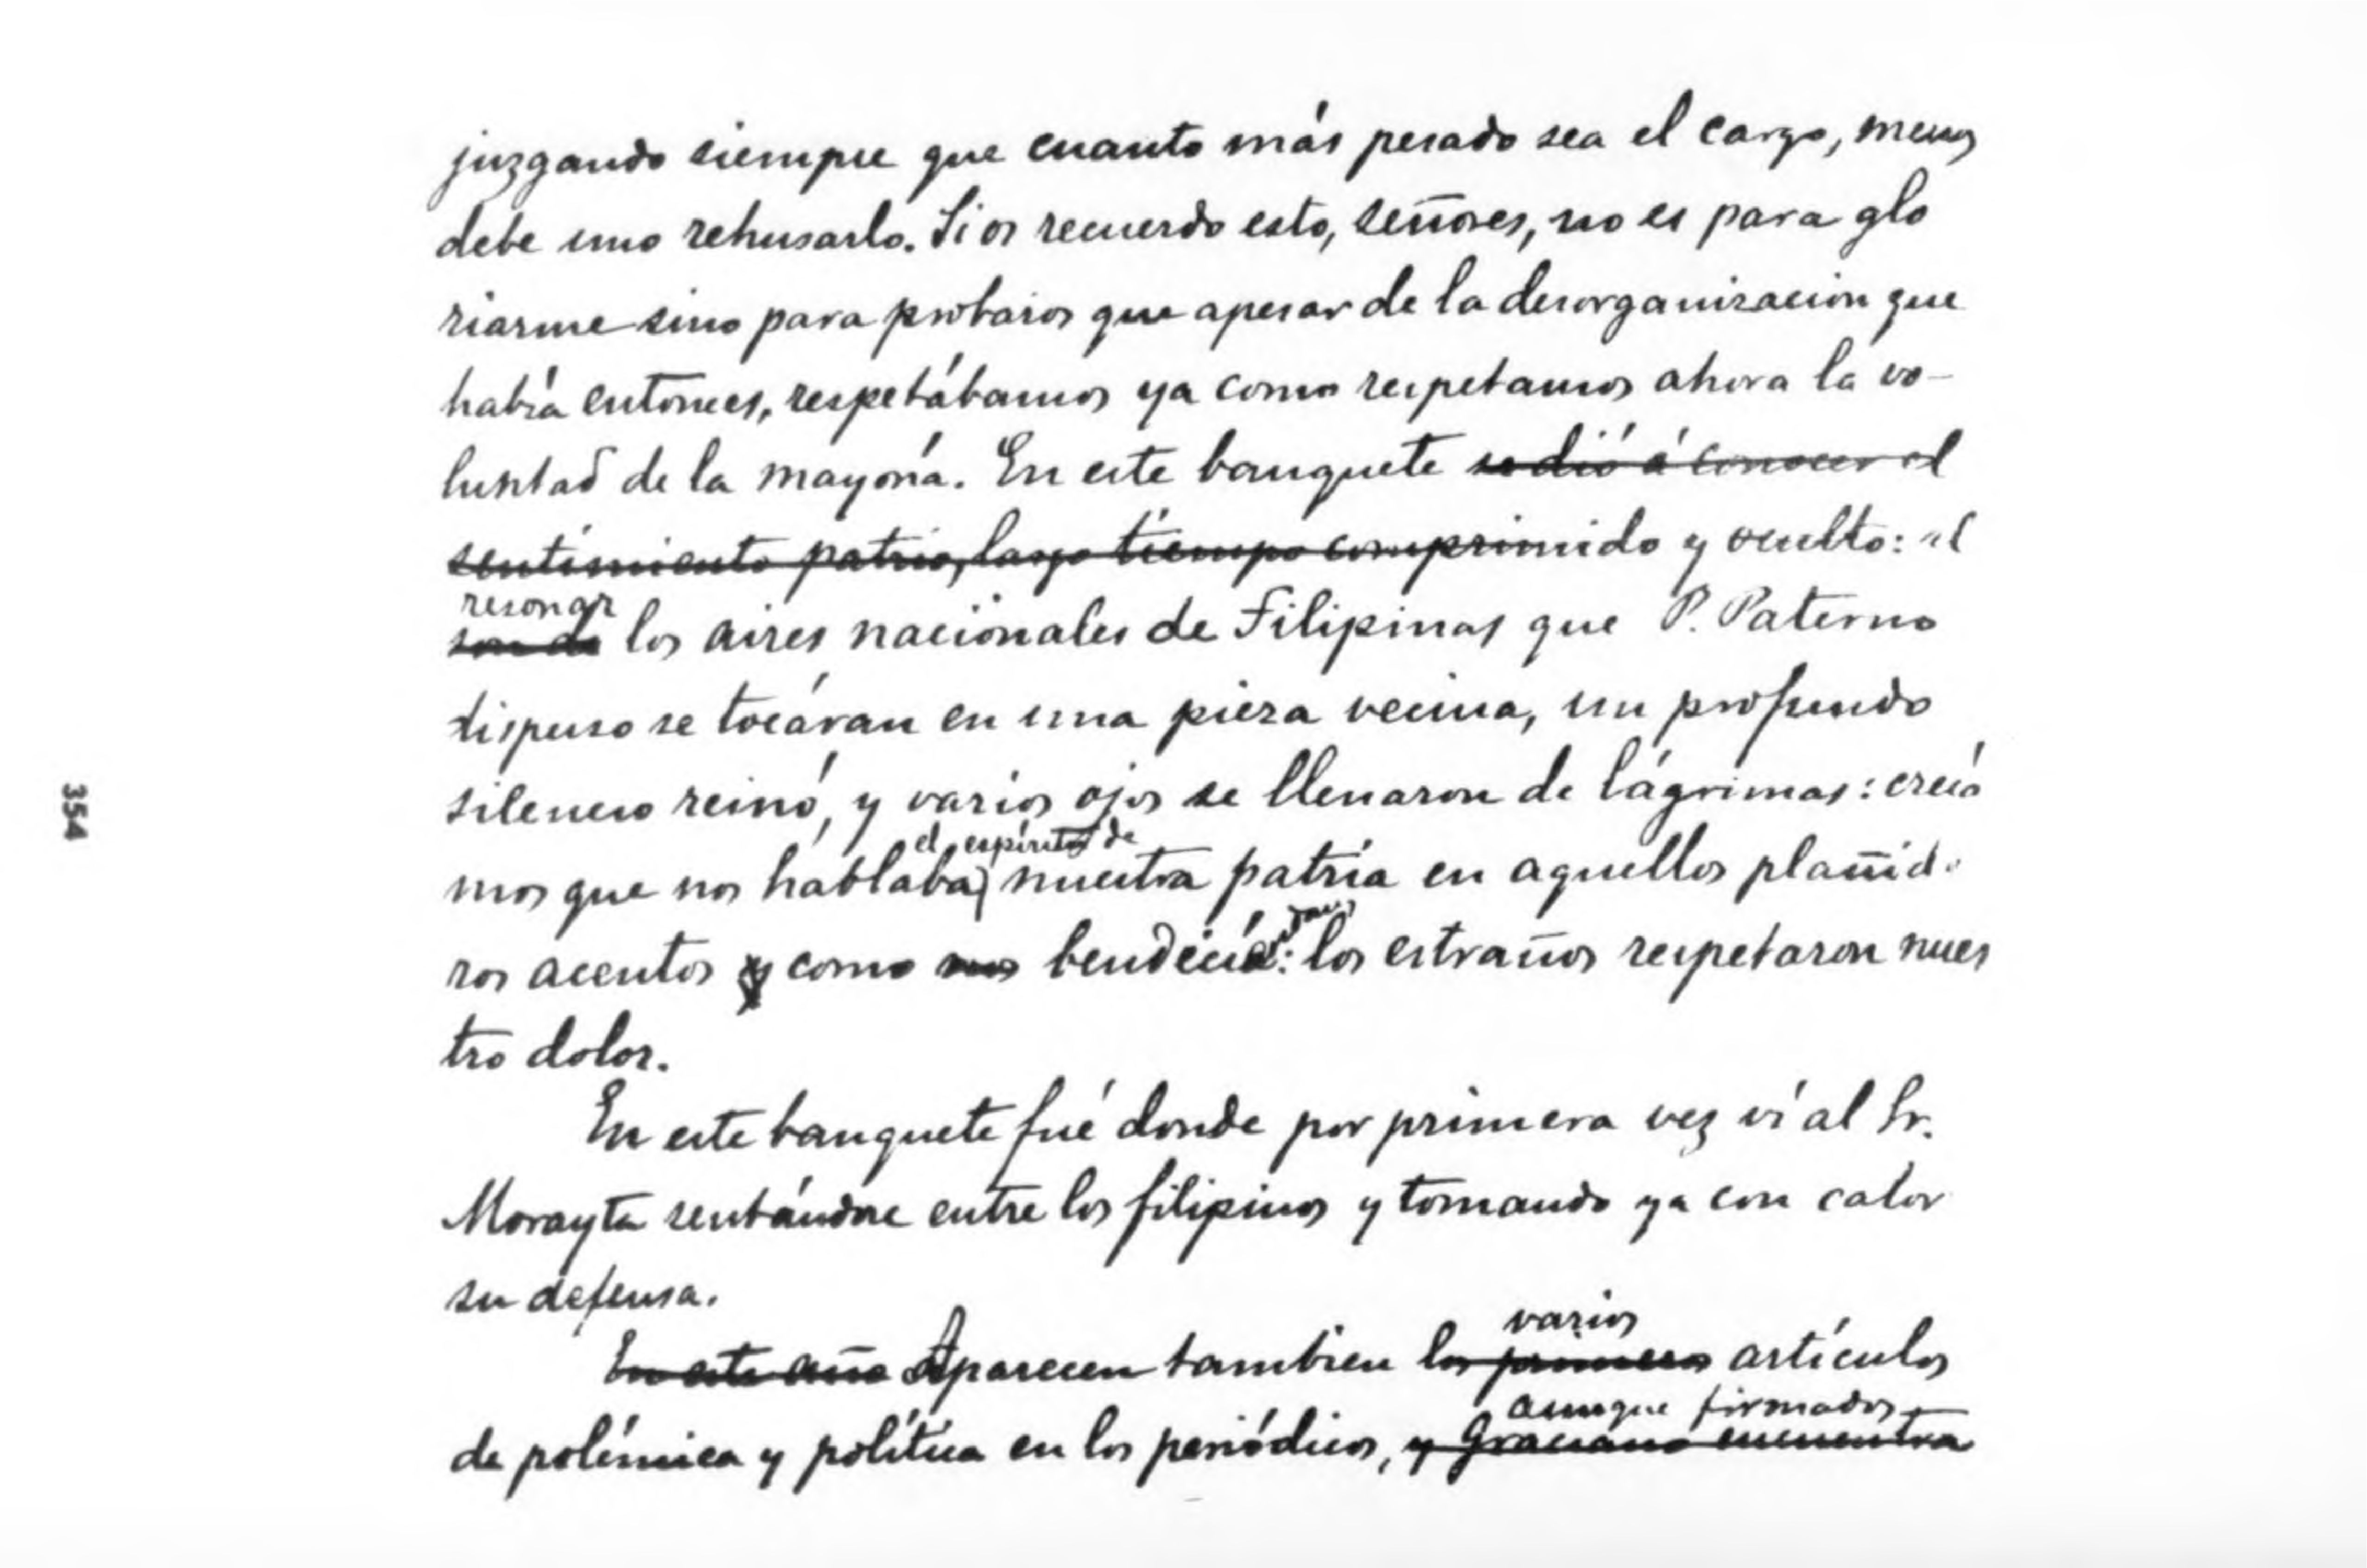 juzgando siempre que cuanto más pesado sea el cargo, menos
debe uno rehusarlo. Si os recuerdo esto, señores, no es para glo
riarme sino para probaros que apesar de la desorganizacion que
había entonces, respetábamos ya como respetamos ahora la vo-
luntad de la mayoría. En este banquete se dió á conocer el
sentimiento patrio, largo tiempo comprimido y oculto: al
resonar
son de los aires nacionales de Filipinas que P. Paterno
dispuso se tocáran en una pieza vecina, un profundo
silencio reinó, y varios ojos se llenaron de lágrimas: creía
el espíritu de
mos que nos hablaba nuestra patria en aquellos plañide
ros acentos y como nos bendecía: los estraños respetaron nues
tro dolor.
En este banquete fué donde por primera vez ví al Sr.
Morayta sentándose entre los filipinos y tomando ya con calor
su defensa.
varios
En este año Aparecen tambien los primeros artículos
aunque firmados
de polémica y política en los periódicos, y Graciano encuentra
354